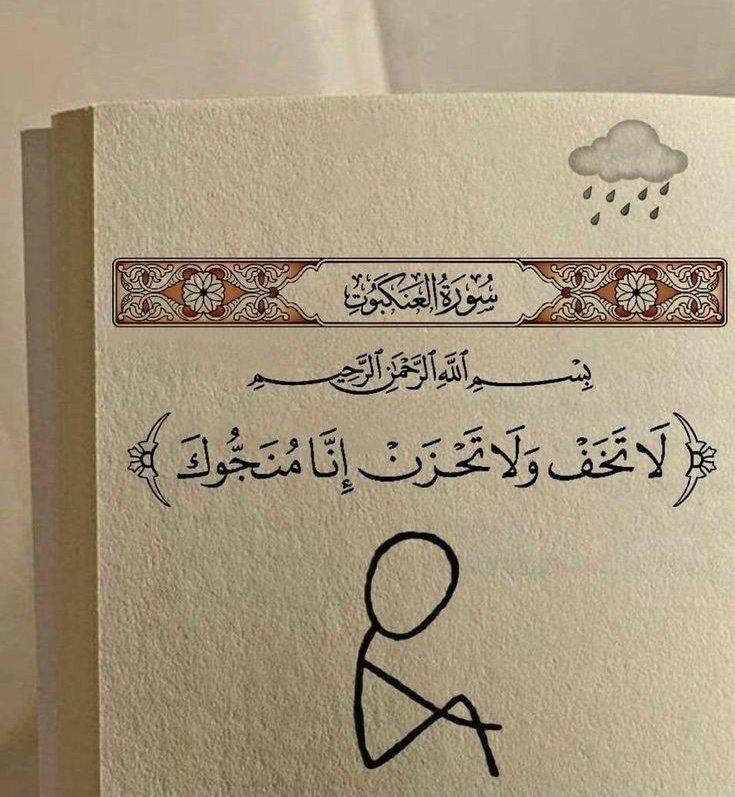 سُورَةُ العَنكَبُوتِ
بِسْمِ ٱللَّهِ ٱلرَّحْمَٰنِ ٱلرَّحِيمِ
﴿لَا تَخَفْ وَلَا تَحْزَنْ إِنَّا مُنَجُّوكَ﴾